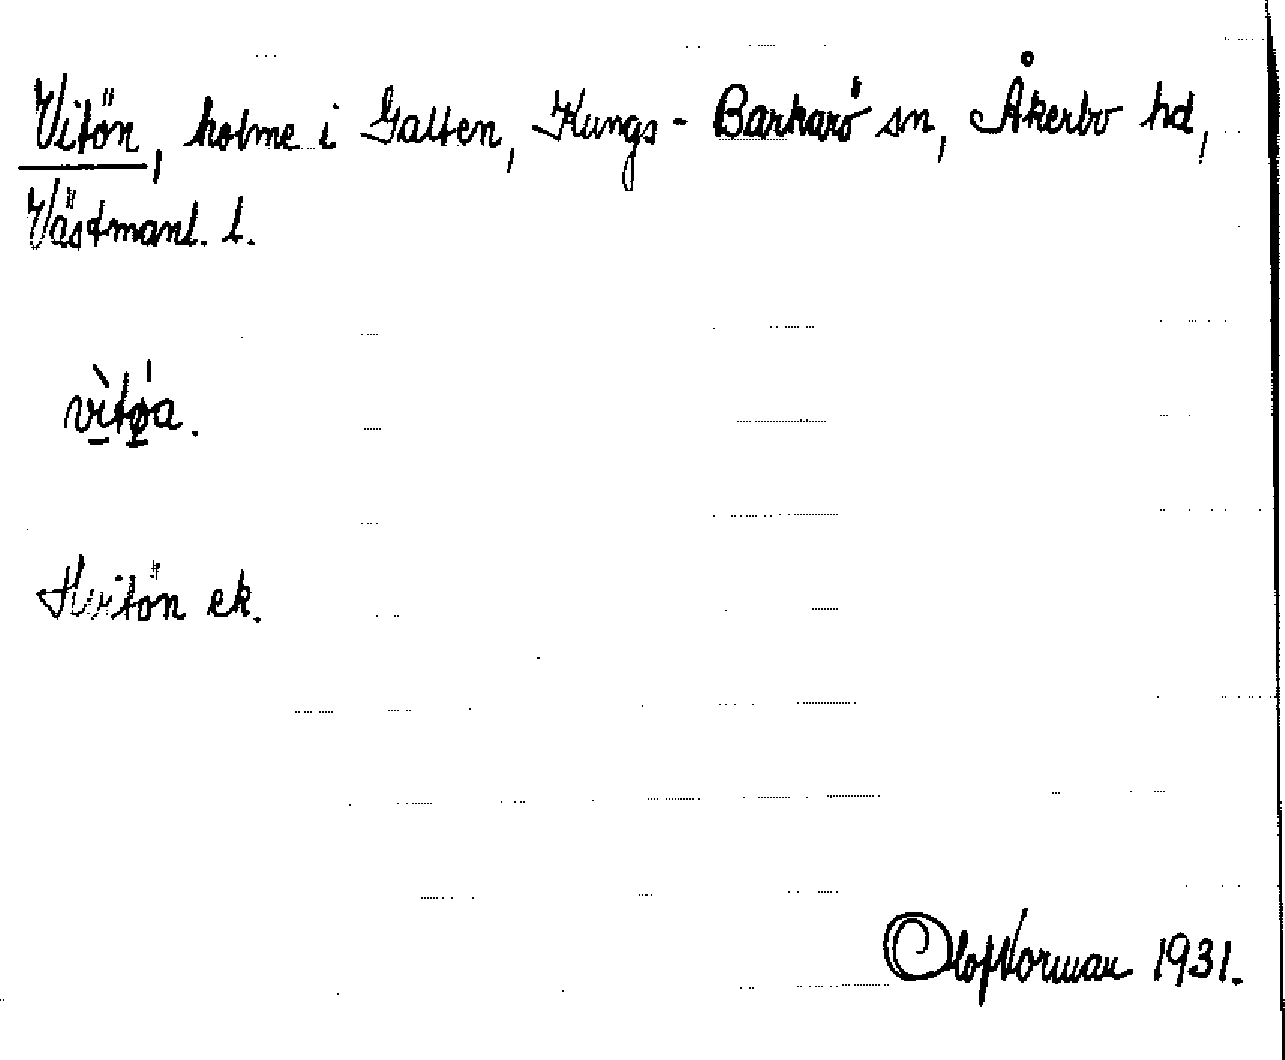 Vitön, holme i Galten, Kungs-Barkarö sn, Åkerbo hd,
Västmanl. l.
vìtø̀a.
Hvitön ek.
Olof Norman 1931.